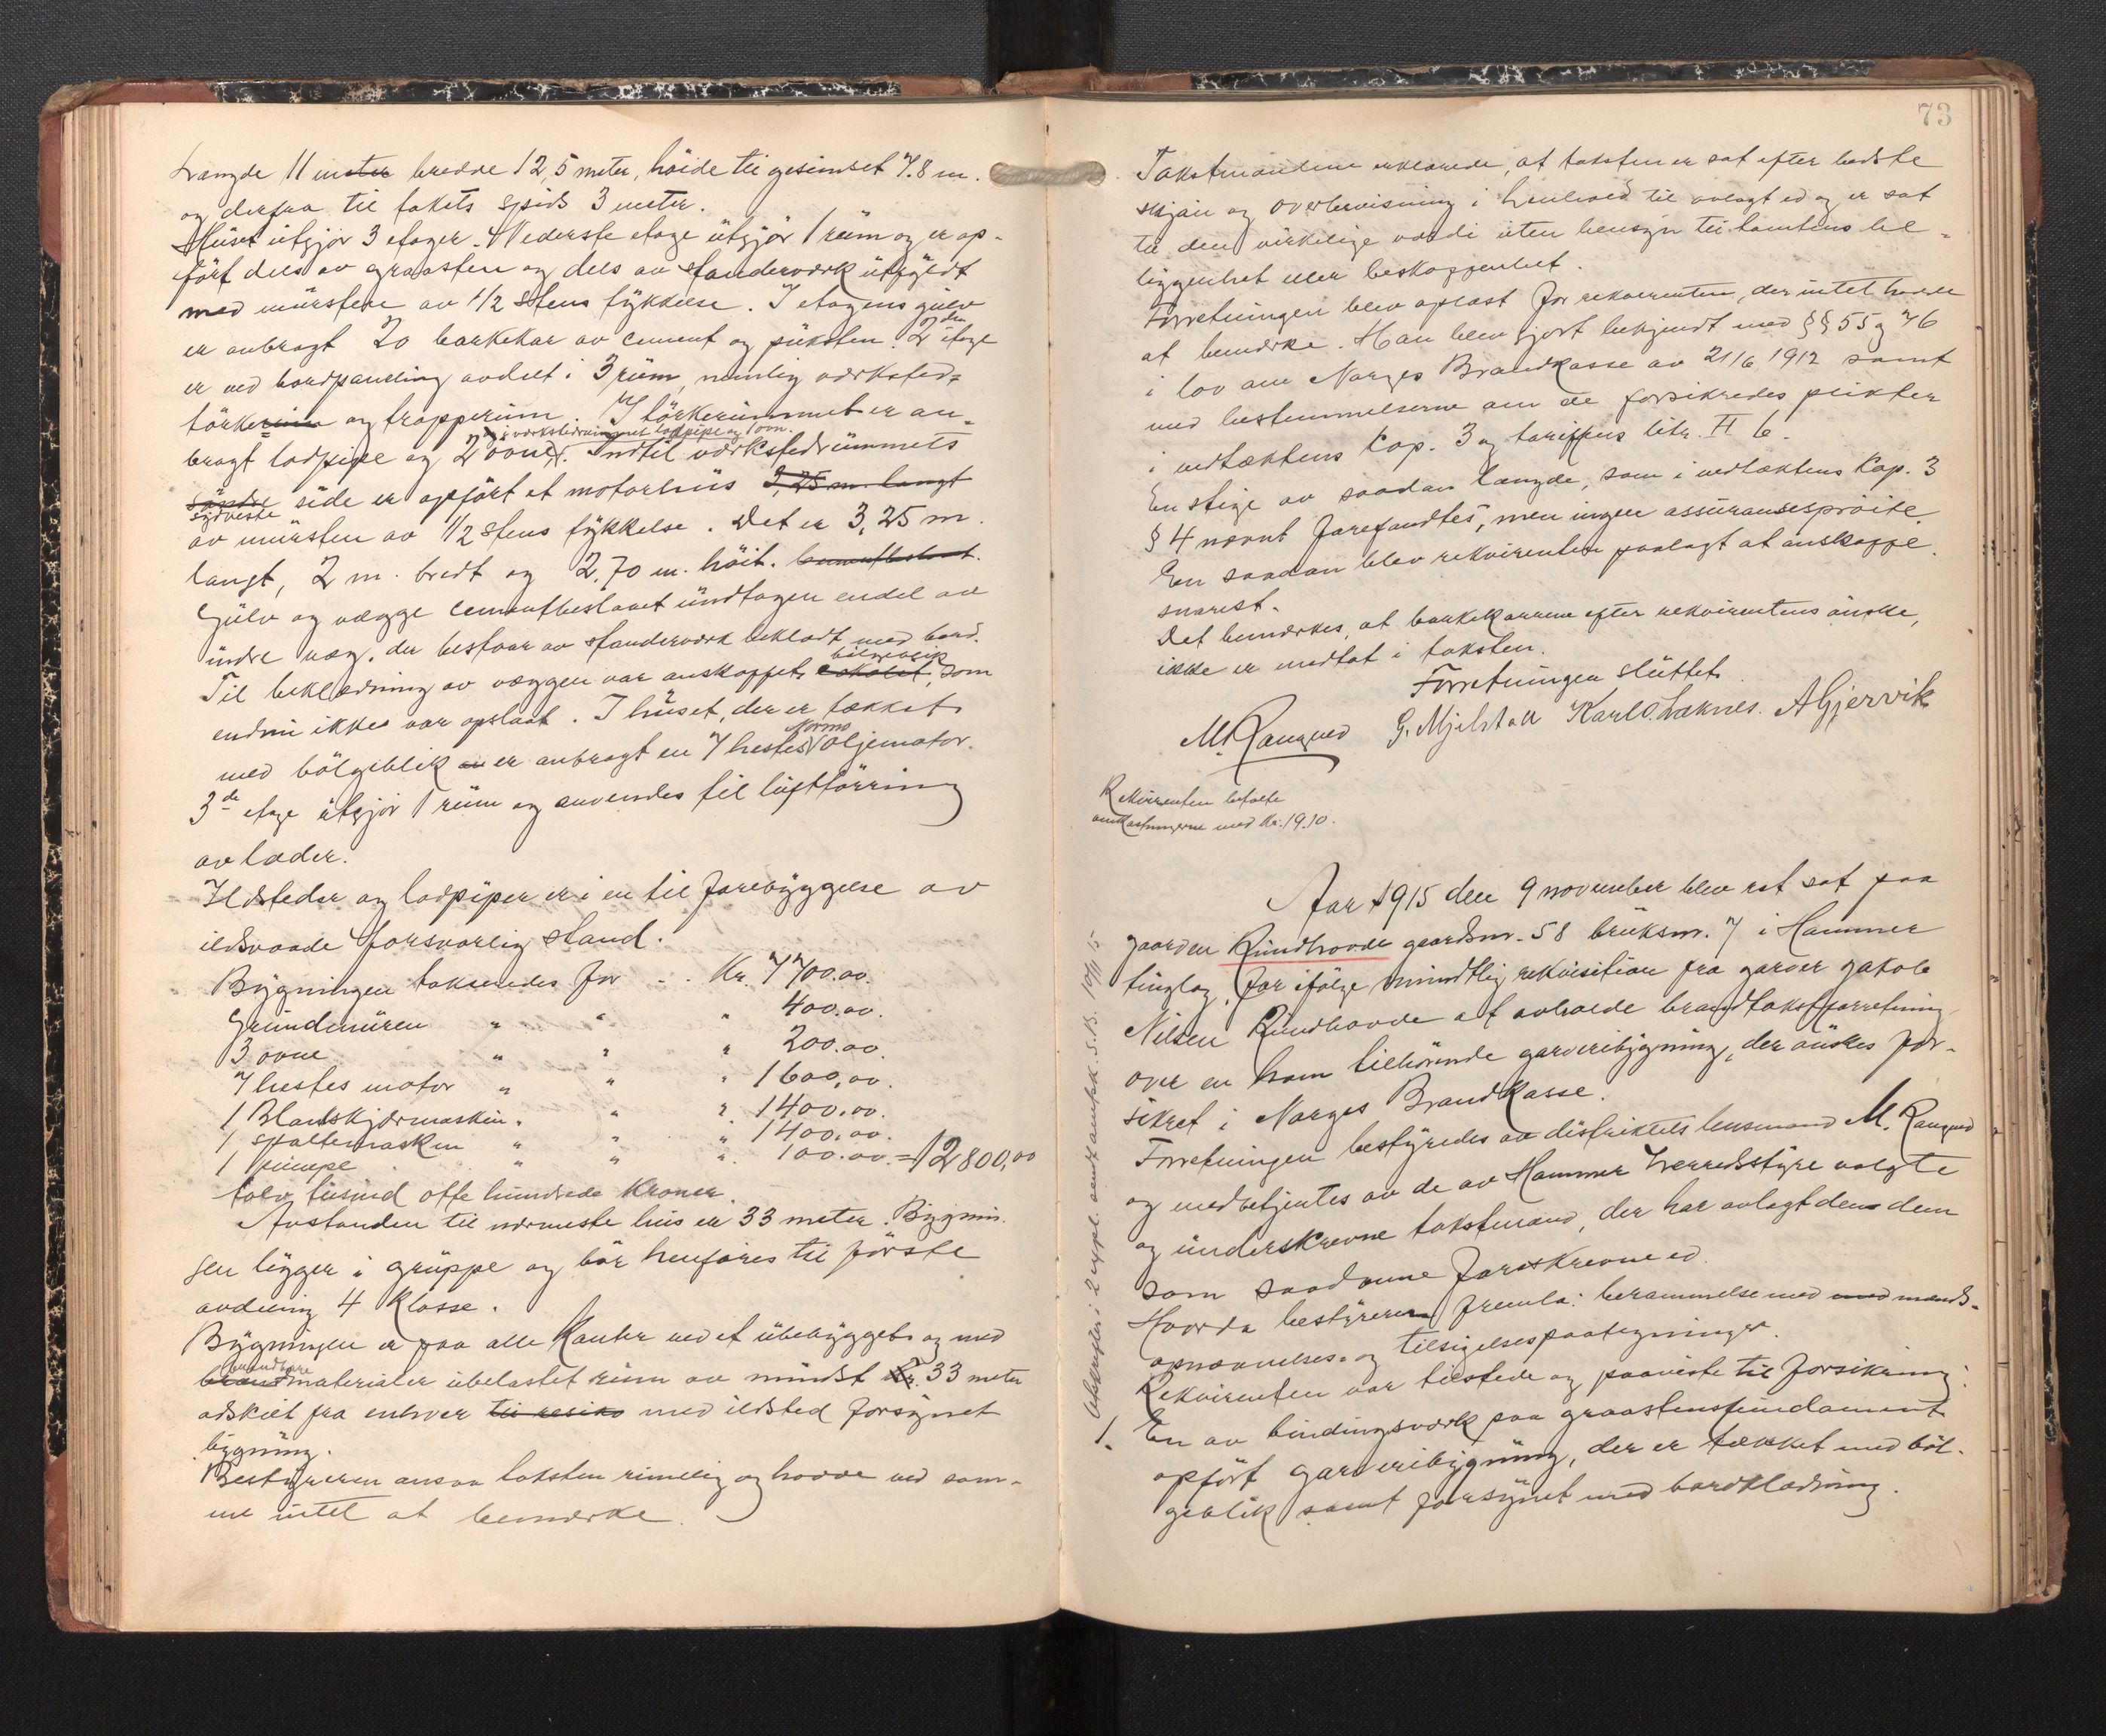 Længde 11 meter bredde 12,5 meter, høide til gesimset 7.8 m.
og derfra til takets spids 3 meter.
Huset utgjør 3 etager. Nederste etage utgjør 1 rum og er op-
ført dels av graasten og dels av standerverk utfyldt
med mursten av 1/2 stens tykkelse. I etagens gulv
er anbragt 20 barkekar av cement og puksten. 2 og den etage
er ved bordpaneling avdelt i 3 rum, nemlig verksted=
tørkerum og trapperum. I tørkerummet er an-
og i verkstedrummet lodpipe og 1 ovn.
bragt lodpipe og 2 ovner. Indtil verkstedrummets
søndre side er opført et motorhus 3,25 m. langt
sydveste
av mursten av 1/2 stens tykkelse. Det er 3,25 m.
langt, 2 m. bredt og 2,70 m. høit. cementbeslaat.
Gulv og vægge cementbeslaaet undtagen endel av
indre væg, der bestaar av standerverk beklædt med bord.
Til beklædning av væggen var anskaffet bølgeblik, som
endnu ikke var opslaat. I huset, der er tækket
med bølgeblik er anbragt en 7 hestes Normo oljemotor.
3de etage utgjør 1 rum og anvendes til lufttørring
av læder.
Ildsteder og lodpiper er i en til forebyggelse av
ildsvaade forsvarlig stand.
Bygningen takseredes for .. Kr. 7700.00.
Grundmuren " " " 400.00.
3 ovne " " " 200.00.
7 hestes motor " " " 1600,00.
1 Blandskjærmaskin " " " 1400.00.
1 spaltemaskin " " " 1400.00.
1 pumpe " " " 100.00. = 12800,00
tolv tusind otte hundrede Kroner.
Avstanden til nærmeste hus er 33 meter. Bygnin-
gen ligger i gruppe og bør henføres til første
avdeling 4 Klasse.
Bygningen er paa alle Kanter ved et ubebygget og med
brændbare
brand materialer ubelastet rum av mindst Kr. 33 meter
adskilt fra enhver til resiko med ildsted forsynet
bygning.
Bestyreren ansaa taksten rimelig og havde ved sam-
me intet at bemerke.
73
Takstmændene erklærede, at taksten er sat efter bedste
skjøn og overbevisning i henhold til avlagt ed og er sat
til den virkelige værdi uten hensyn til tomtens be-
liggenhet eller beskaffenhet.
Forretningen blev oplæst for rekvirenten, der intet havde
at bemerke. Han blev gjort bekjendt med §§ 55 og 76
i lov om Norges Brandkasse av 21/6 1912 samt
med bestemmelserne om de forsikredes plikter
i vedtæktens Kap. 3 og tariffens litr. H 6.
En stige av saadan længde, som i vedtæktens Kap. 3
§ 4 nævnt forefandtes, men ingen assuransesprøite.
En saadan blev rekvirenten paalagt at anskaffe
snarest.
Det bemerkes, at barkekarrene efter rekvirentens ønske,
ikke er medtat i taksten.
Forretningen sluttet.
M. Rangued G. Mjelstad Karl O. Løknes. A Gjervik
Rekvirenten betalte
omkostningerne med Kr. 19.10.
Aar 1915 den 9 november blev ret sat paa
gaarden Rundhovde gaardsnr. 58 bruksnr. 7 i Hammer
tinglag, for ifølge mundtlig rekvisition fra garver Jakob
Nilsen Rundhovde at avholde brandtakstforretning
over en ham tilhørende garveribygning, der ønskes for-
sikret i Norges Brandkasse.
Forretningen bestyredes av distriktets lensmand M. Rangued
og medbetjentes av de av Hammer herredsstyre valgte
og underskrevne takstmænd, der har avlagt den dem
som saadanne foreskrevne ed.
Hvorda bestyreren fremla: berammelse med med mænds-
opnævnelses- og tilsigelsespaategninger.
Rekvirenten var tilstede og paaviste til forsikring:
1. En av bindingsverk paa graastensfundament
opført garveribygning, der er tækket med bøl-
geblik samt forsynet med bordklædning.
Utskrifter i 2 expl. sendt amtsk. S. B. 10/11 15